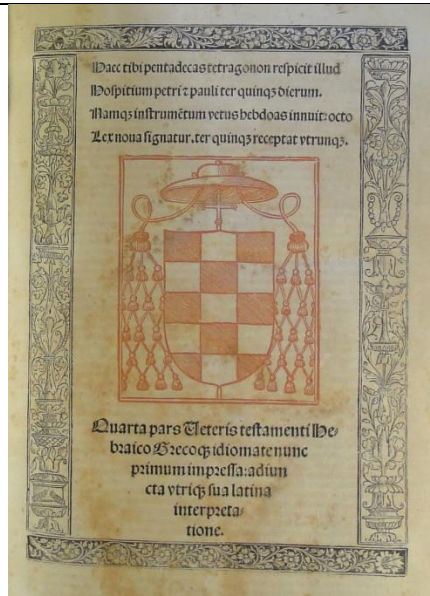 Haec tibi pentadecas tetragonon respicit illud
Hospitium petri ⁊ pauli ter quinqꝫ dierum.
Namqꝫ instrumētum vetus hebdoas innuit: octo
Lex noua signatur. ter quinqꝫ receptat vtrunqꝫ.
Quarta pars Ueteris testamenti He-
braico Grecoqꝫ idiomate nunc
primum impressa: adiun
cta vtriqꝫ sua latina
interpreta-
tione.